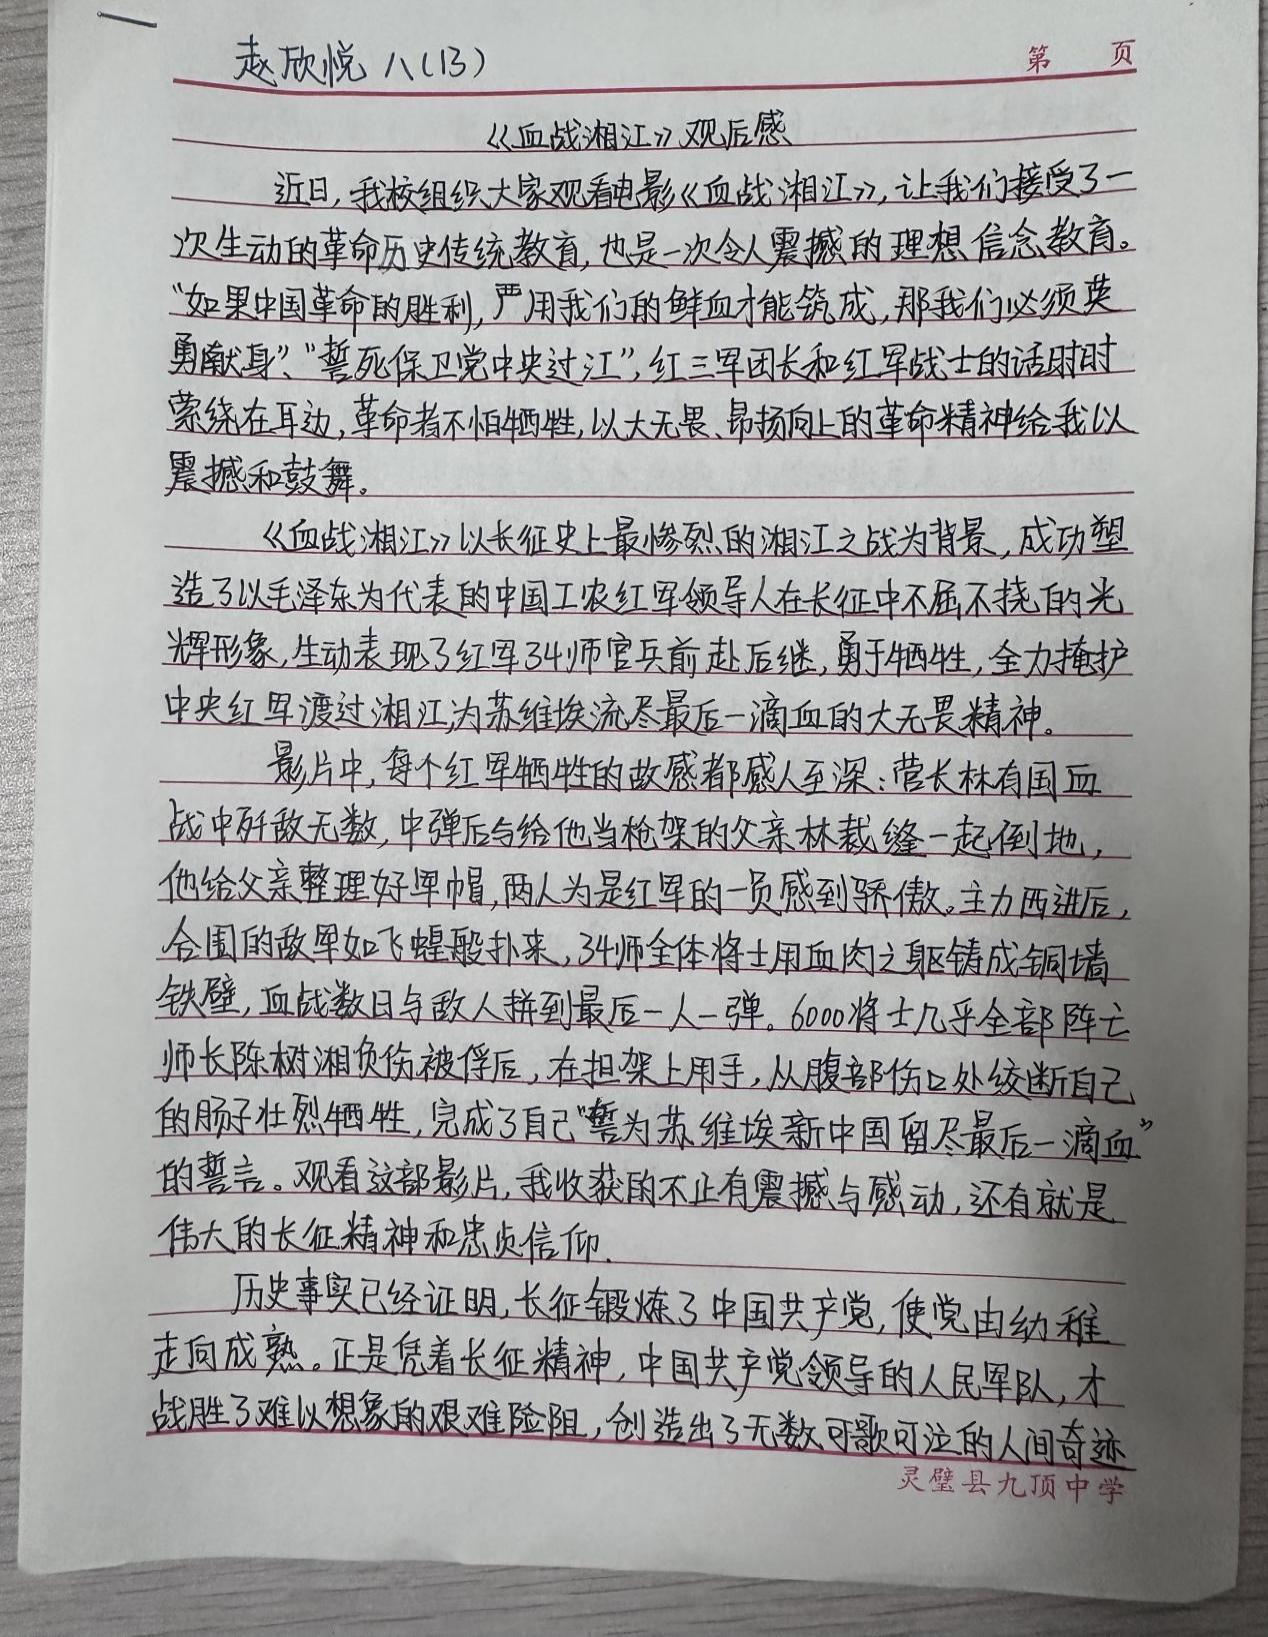 赵欣悦 八(13)
第 页
《血战湘江》观后感
近日,我校组织大家观看电影《血战湘江》,让我们接受了一
次生动的革命历史传统教育,也是一次令人震撼的理想信念教育。
“如果中国革命的胜利,严用我们的鲜血才能筑成,那我们必须英
勇献身”、“誓死保卫党中央过江”,红三军团长和红军战士的话时时
萦绕在耳边,革命者不怕牺牲,以大无畏、昂扬向上的革命精神给我以
震撼和鼓舞。
《血战湘江》以长征史上最惨烈的湘江之战为背景,成功塑
造了以毛泽东为代表的中国工农红军领导人在长征中不屈不挠的光
辉形象,生动表现了红军34师官兵前赴后继,勇于牺牲,全力掩护
中央红军渡过湘江,为苏维埃流尽最后一滴血的大无畏精神。
影片中,每个红军牺牲的故感都感人至深:营长林有国血
战中歼敌无数,中弹后与给他当枪架的父亲林裁缝一起倒地,
他给父亲整理好军帽,两人为是红军的一员感到骄傲。主力西进后,
合围的敌军如飞蝗般扑来,34师全体将士用血肉之躯铸成铜墙
铁壁,血战数日与敌人拼到最后一人一弹。6000将士几乎全部阵亡
师长陈树湘负伤被俘后,在担架上用手,从腹部伤口处绞断自己
的肠子壮烈牺牲,完成了自己“誓为苏维埃新中国留尽最后一滴血”
的誓言。观看这部影片,我收获的不止有震撼与感动,还有就是
伟大的长征精神和忠贞信仰.
历史事实已经证明,长征锻炼了中国共产党,使党由幼稚
走向成熟。正是凭着长征精神,中国共产党领导的人民军队,才
战胜了难以想象的艰难险阻,创造出了无数可歌可泣的人间奇迹
灵璧县九顶中学